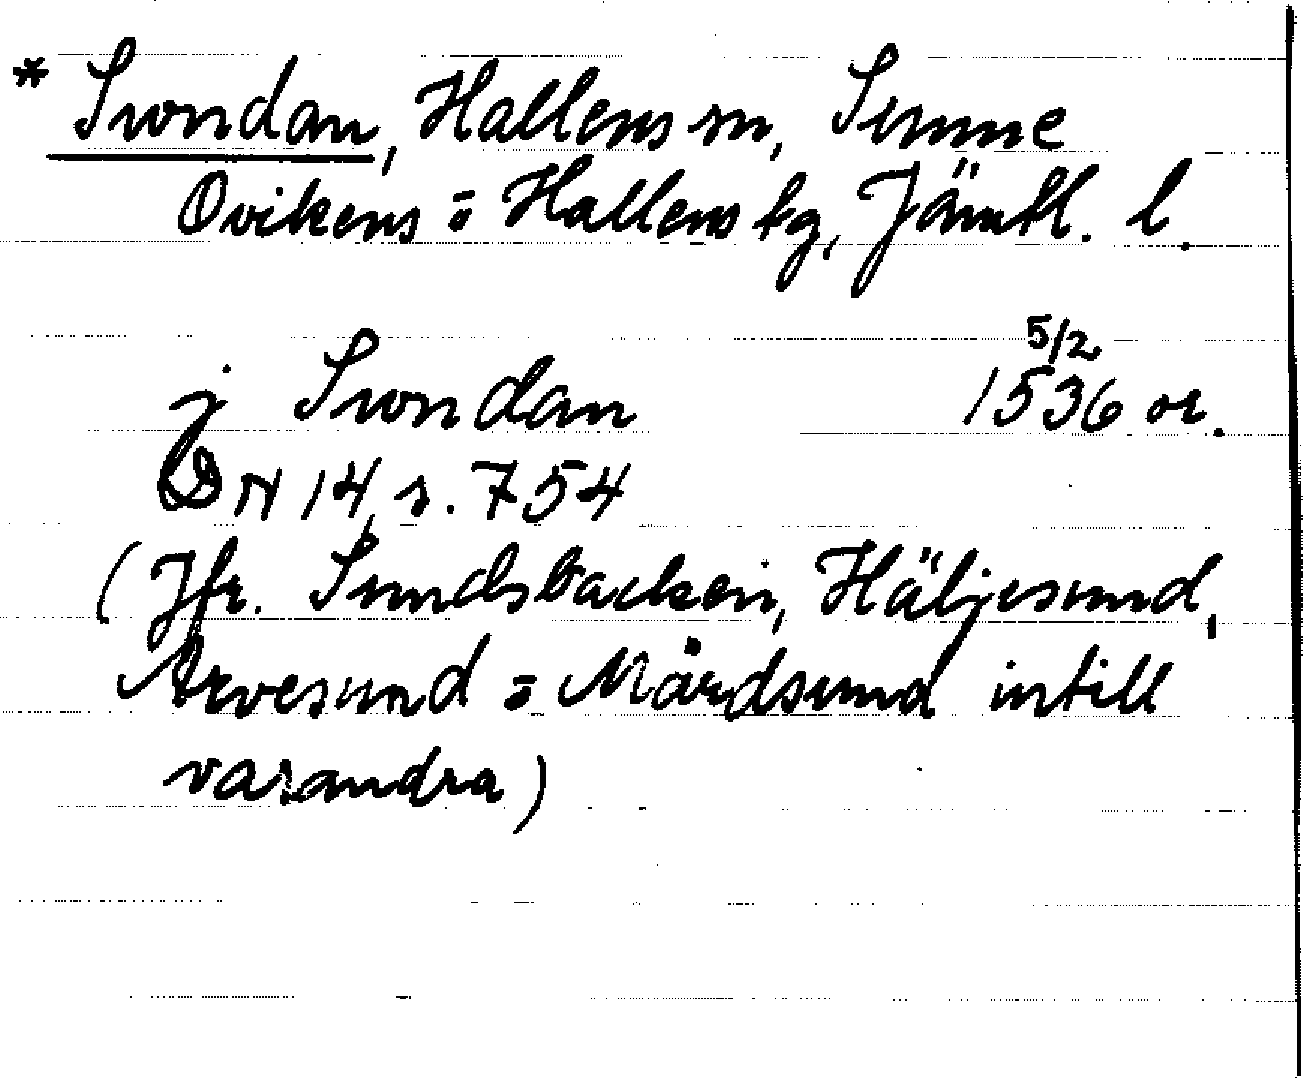 * Swndan, Hallens sn, Sunne
Ovikens o Hallens tg, Jämtl. l.
j Swndan 5/2 1536 or.
DN 14, s. 754
(Jfr. Sundsbacken, Häljesund,
Arvesund o Mårdsund intill
varandra)